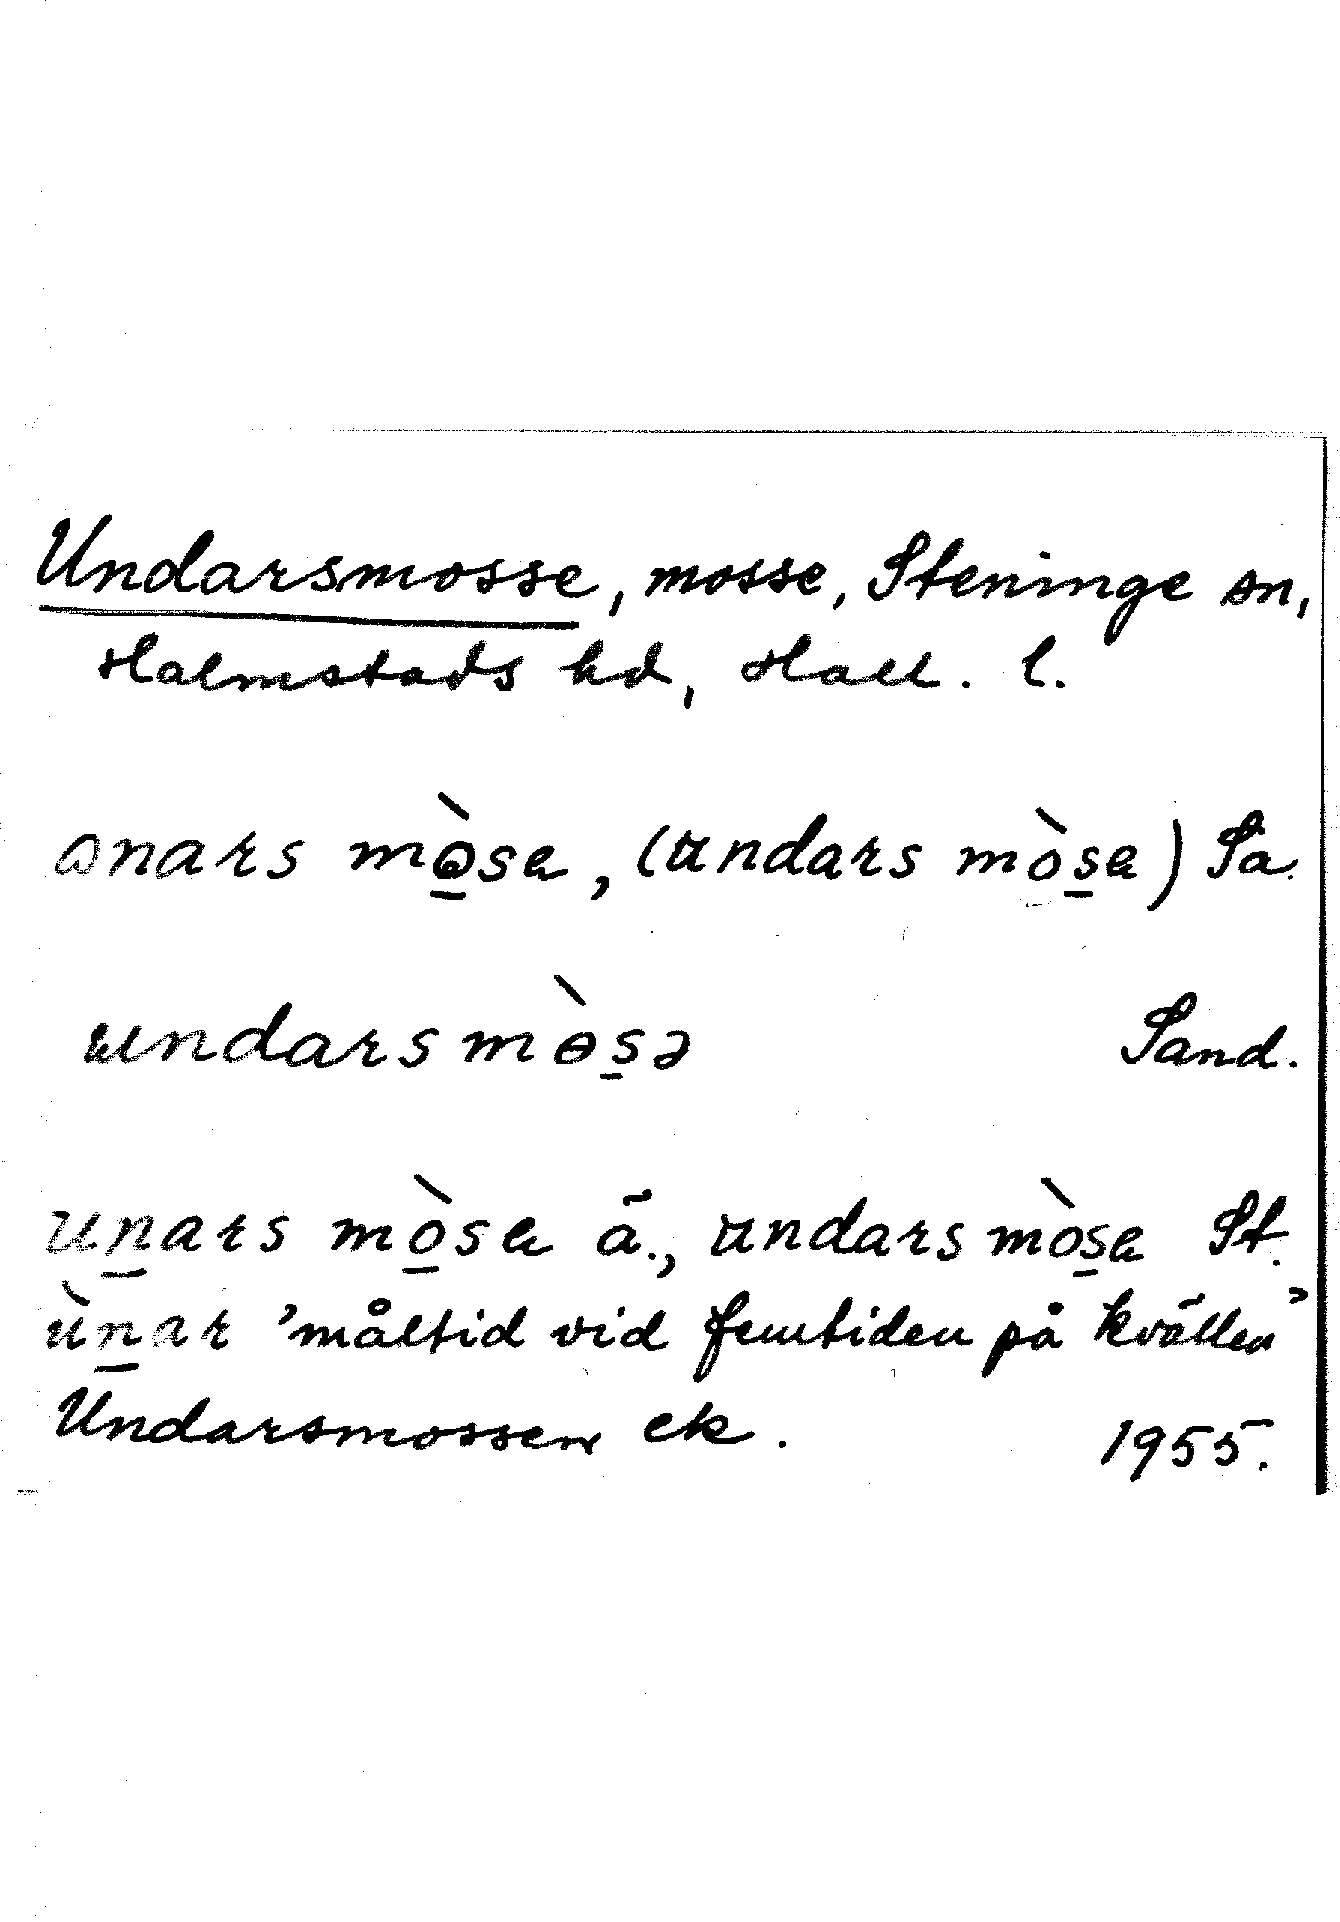 Undarsmosse, mosse, Steninge sn,
Halmstads hd, Hall. l.
onars mò̲sa, (undars mòs̲a) Sa.
undarsmɵ̀s̲ə Sand.
un̲ars mò̲sa ā., undarsmòs̲a St.
ùn̲ar 'måltid vid femtiden på kvällen'
Undarsmossen ek. 1955.